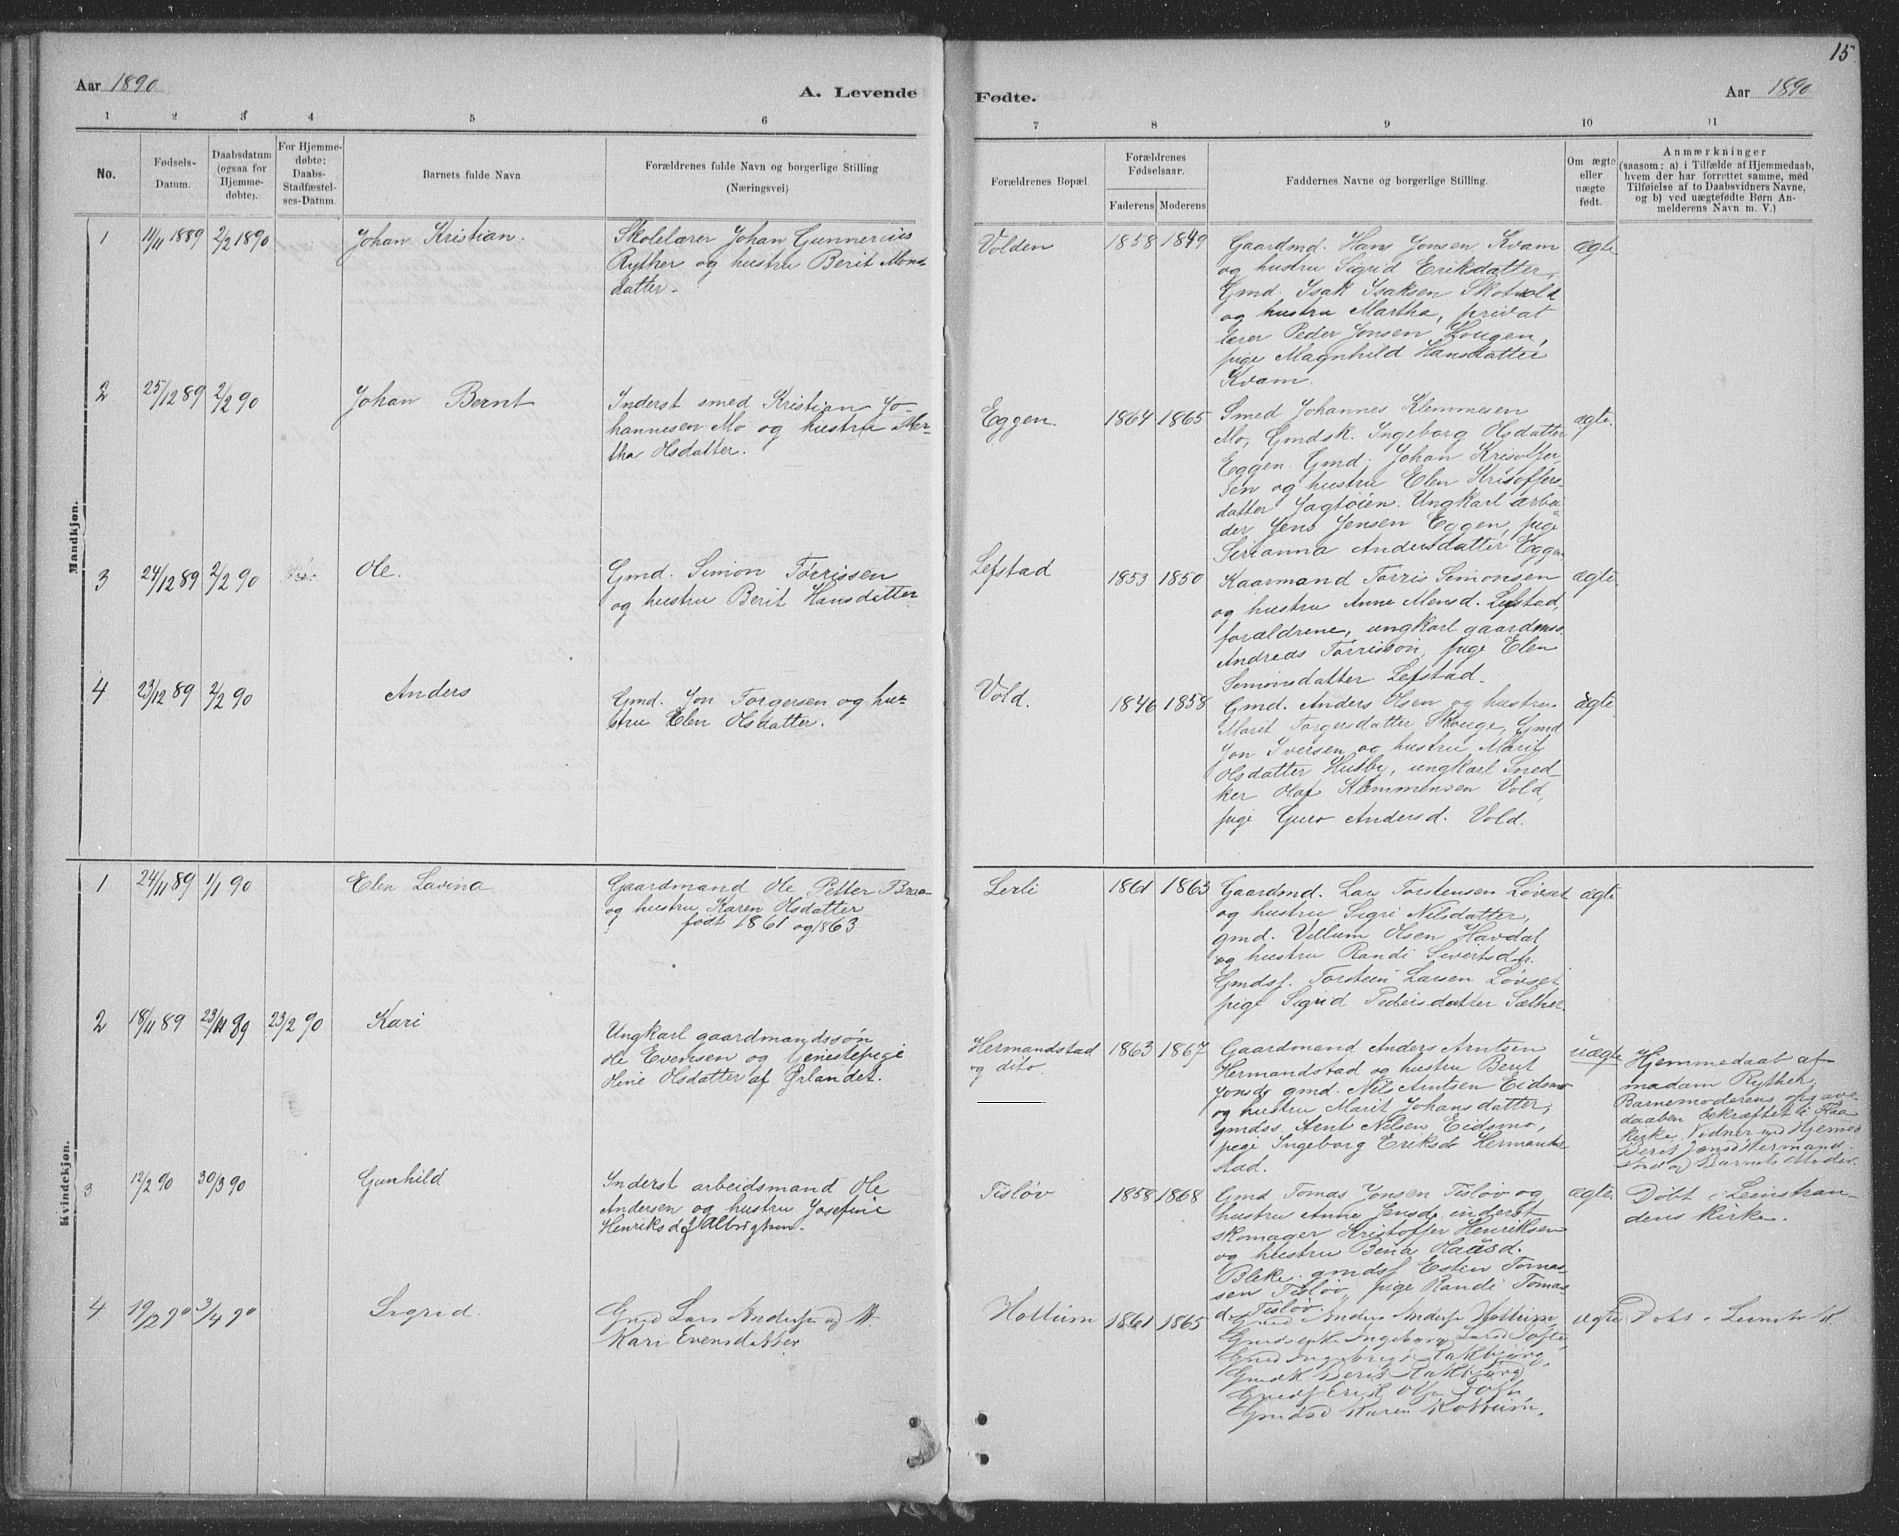 15
Aar 1890
A. Levende
Fødte.
Aar 1890
1 2 3 4 5 6 7 8 9 10 11
No.
Fødsels-
Datum.
Daabsdatum
(ogsaa for
Hjemme-
døbte).
For Hjemme-
døbte:
Daabs-
Stadfæstel-
ses-Datum.
Barnets fulde Navn
Forældrenes fulde Navn og borgerlige Stilling
(Næringsvei)
Forældrenes Bopæl.
Forældrenes
Fødselsaar.
Faderens
Moderens
Faddernes Navne og borgerlige Stilling.
Om ægte
eller
uægte
født.
Anmærkninger
(saasom: a) i Tilfælde af Hjemmedaab,
hvem der har forrettet samme, med
Tilføielse af to Daabsvidners Navne,
og b) ved uægtefødte Børn An-
melderens Navn m. V.)
Mandkjøn.
1
11/11 1889
2/2 1890
Johan Kristian.
Skolelærer Johan Gunnerius
Ryther og hustru Berit Mons
datter.
Volden
1858
1849
Gaardmd. Hans Jonsen Kvam
og hustru Sigrid Eriksdatter,
Gmd. Isak Isaksen Skotvold
og hustru Martha, privat
lærer Peder Jonsen Hougen,
pige Magnhild Hansdatter
Kvam.
ægte
2
25/12 89
2/2 90
Johan Bernt
Inderst smed Kristian Jo-
hannesen Mo og hustru Mer-
tha Olsdatter.
Eggen.
1864
1865
Smed Johannes Klemmesen
Mo, Gmdsk. Ingeborg Olsdatter
Eggen. Gmd. Johan Kristoffer-
sen og hustru Elen Kristoffers-
datter Jagtøien. Ungkarl arbei-
der Jens Jensen Eggen, pige
Serianna Andersdatter Eggen
ægte.
3
24/12 89
2/2 90
Ole.
Gmd. Simon Torrissen
og hustru Berit Hansdatter
Lefstad
1853
1850
Kaarmand Torris Simonsen
og hustru Anne Monsd. Lefstad,
forældrene, ungkarl gaardmss.
Andreas Torrisson, pige Elen
Simonsdatter Lefstad.
ægte.
4
23/12 89
2/2 90
Anders
Gmd. Jon Torgersen og hu-
stru Elen Olsdatter.
Vold.
1846
1858
Gmd. Anders Olsen og hustru
Marit Torgersdatter Skouge, Gmd
Jon Iversen og hustru Marit
Olsdatter Husby, ungkarl Sned-
ker Olaf Klemmensen Vold,
pige Guro Andersd. Vold.
ægte.
Kvindekjøn.
1
24/11 89
1/1 90
Elen Lavina
Gaardmand Ole Petter Braa
og hustru Karen Olsdatter
født 1861 og 1863
Lerli
1861
1863
Gaardmd. Lars Torstensen Løvset
og hustru Sigri Nilsdatter,
gmd. Villum Olsen Havdal
og hustru Randi Sivertsdtr.
Gmdsf. Torstein Larsen Løvset
pige Sigrid Pedersdatter Sæther
ægte
2
18/11 89
23/11 89
23/2 90
Kari
Ungkarl gaardmandssøn
Ole Evensen og tjenestepige
Oline Olsdatter af Ørlandet.
Hermandstad
og dito.
1863
1867
Gaardmand Anders Arntsen
Hermanstad og hustru Berit
Jonsd. gmd. Nils Arntsen Eidsmo
og hustru Marit Johansdatter,
gmdss. Arnt Nilsen Eidsmo,
pige Ingeborg Eriksd. Hermand-
stad.
uægte
Hjemmedaab af
madam Ryther.
Barnemoderens opgave
daaben bekræftet i Flaa
kirke. Vidner ved Hjemmed
Berit Jonsd Hermand-
stad og Barnets Moder.
3
12/2 90
30/3 90
Gunhild
Inderst arbeidsmand Ole
Andersen og hustru Josefine
Henriksd. f Albrigtsen.
Tisløv
1858
1868
Gmd Tomas Jonsen Tisløv og
hustru Anne Jensd. inderst
skomager Kristoffer Henriksen
og hustru Bena Olausd.
Bleke. gmdsf Estin Tomas-
sen Tisløv, pige Randi Tomas-
d. Tisløv.
ægte.
Døbt i Leinstran-
dens kirke.
4
19/2 90
3/4 90
Sigrid.
Gmd Lars Andersen og H.
Kari Evensdatter
Hollum
1861
1865
Gmd Anders Anders. Hollum
Gmdenke Ingeborg Larsd Tofte,
Gmd Ingebrigt Rakbjørg,
Gmdk Berit Rakbjørg
Gmdsf Erik Ols. Toft,
Gmdsd Karen Hollum.
ægte
Døbt i Leinstr. K.